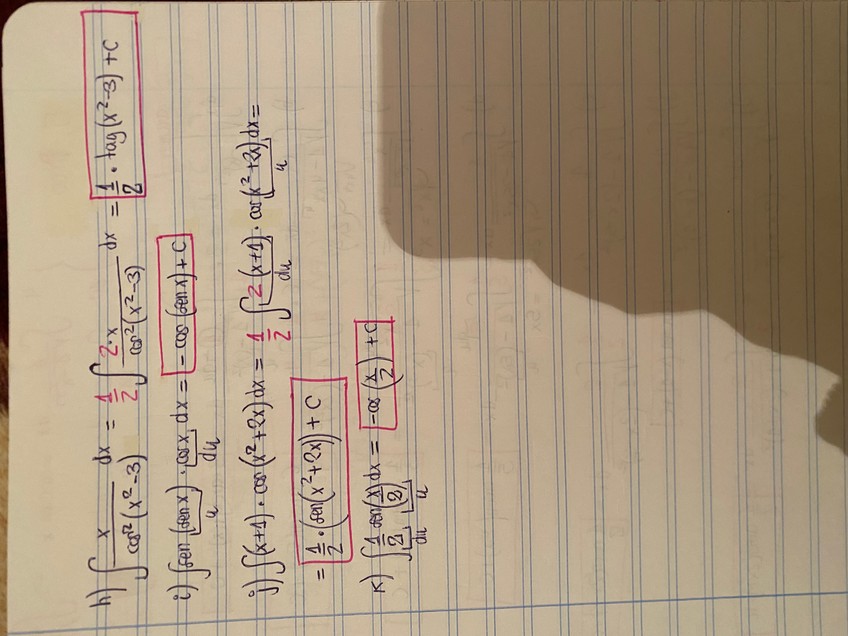 h) ∫ x/cos²(x²-3) dx = 1/2 ∫ 2·x/cos²(x²-3) dx = 1/2 · tag(x²-3) + C
i) ∫ sen(sen x) · cos x dx = - cos(sen x) + C
u du
j) ∫ (x+1) · cos(x²+2x) dx = 1/2 ∫ 2(x+1) · cos(x²+2x) dx =
du u
= 1/2 · (sen(x²+2x)) + C
k) ∫ 1/2 sen(x/2) dx = - cos(x/2) + C
du u